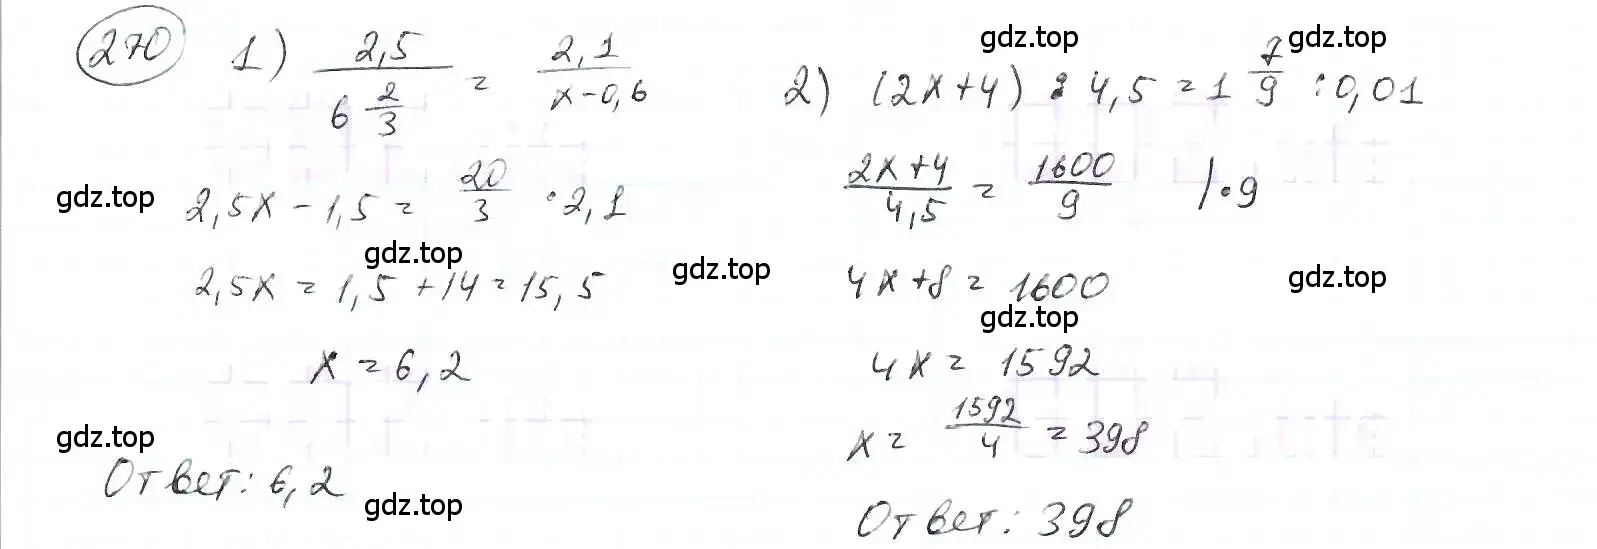 270
1) 2,5 / 6 2/3 = 2,1 / x-0,6
2,5x - 1,5 = 20/3 · 2,1
2,5x = 1,5 + 14 = 15,5
x = 6,2
Ответ: 6,2
2) (2x+4) : 4,5 = 1 7/9 : 0,01
2x+4 / 4,5 = 1600 / 9 | · 9
4x+8 = 1600
4x = 1592
x = 1592/4 = 398
Ответ: 398
gdz.top
gdz.top
gdz.top
gdz.top
gdz.top
gdz.top
gdz.top
gdz.top
gdz.top